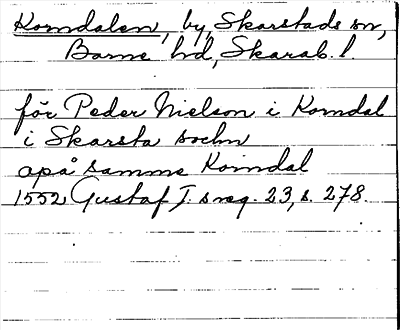 Korndalen, by, Skarstads sn,
Barne hd, Skarab. l.
för Peder Nielson i Korndal
i Skarsta sochn
opå samme Korndal
1552 Gustaf I. s reg. 23, s. 278.